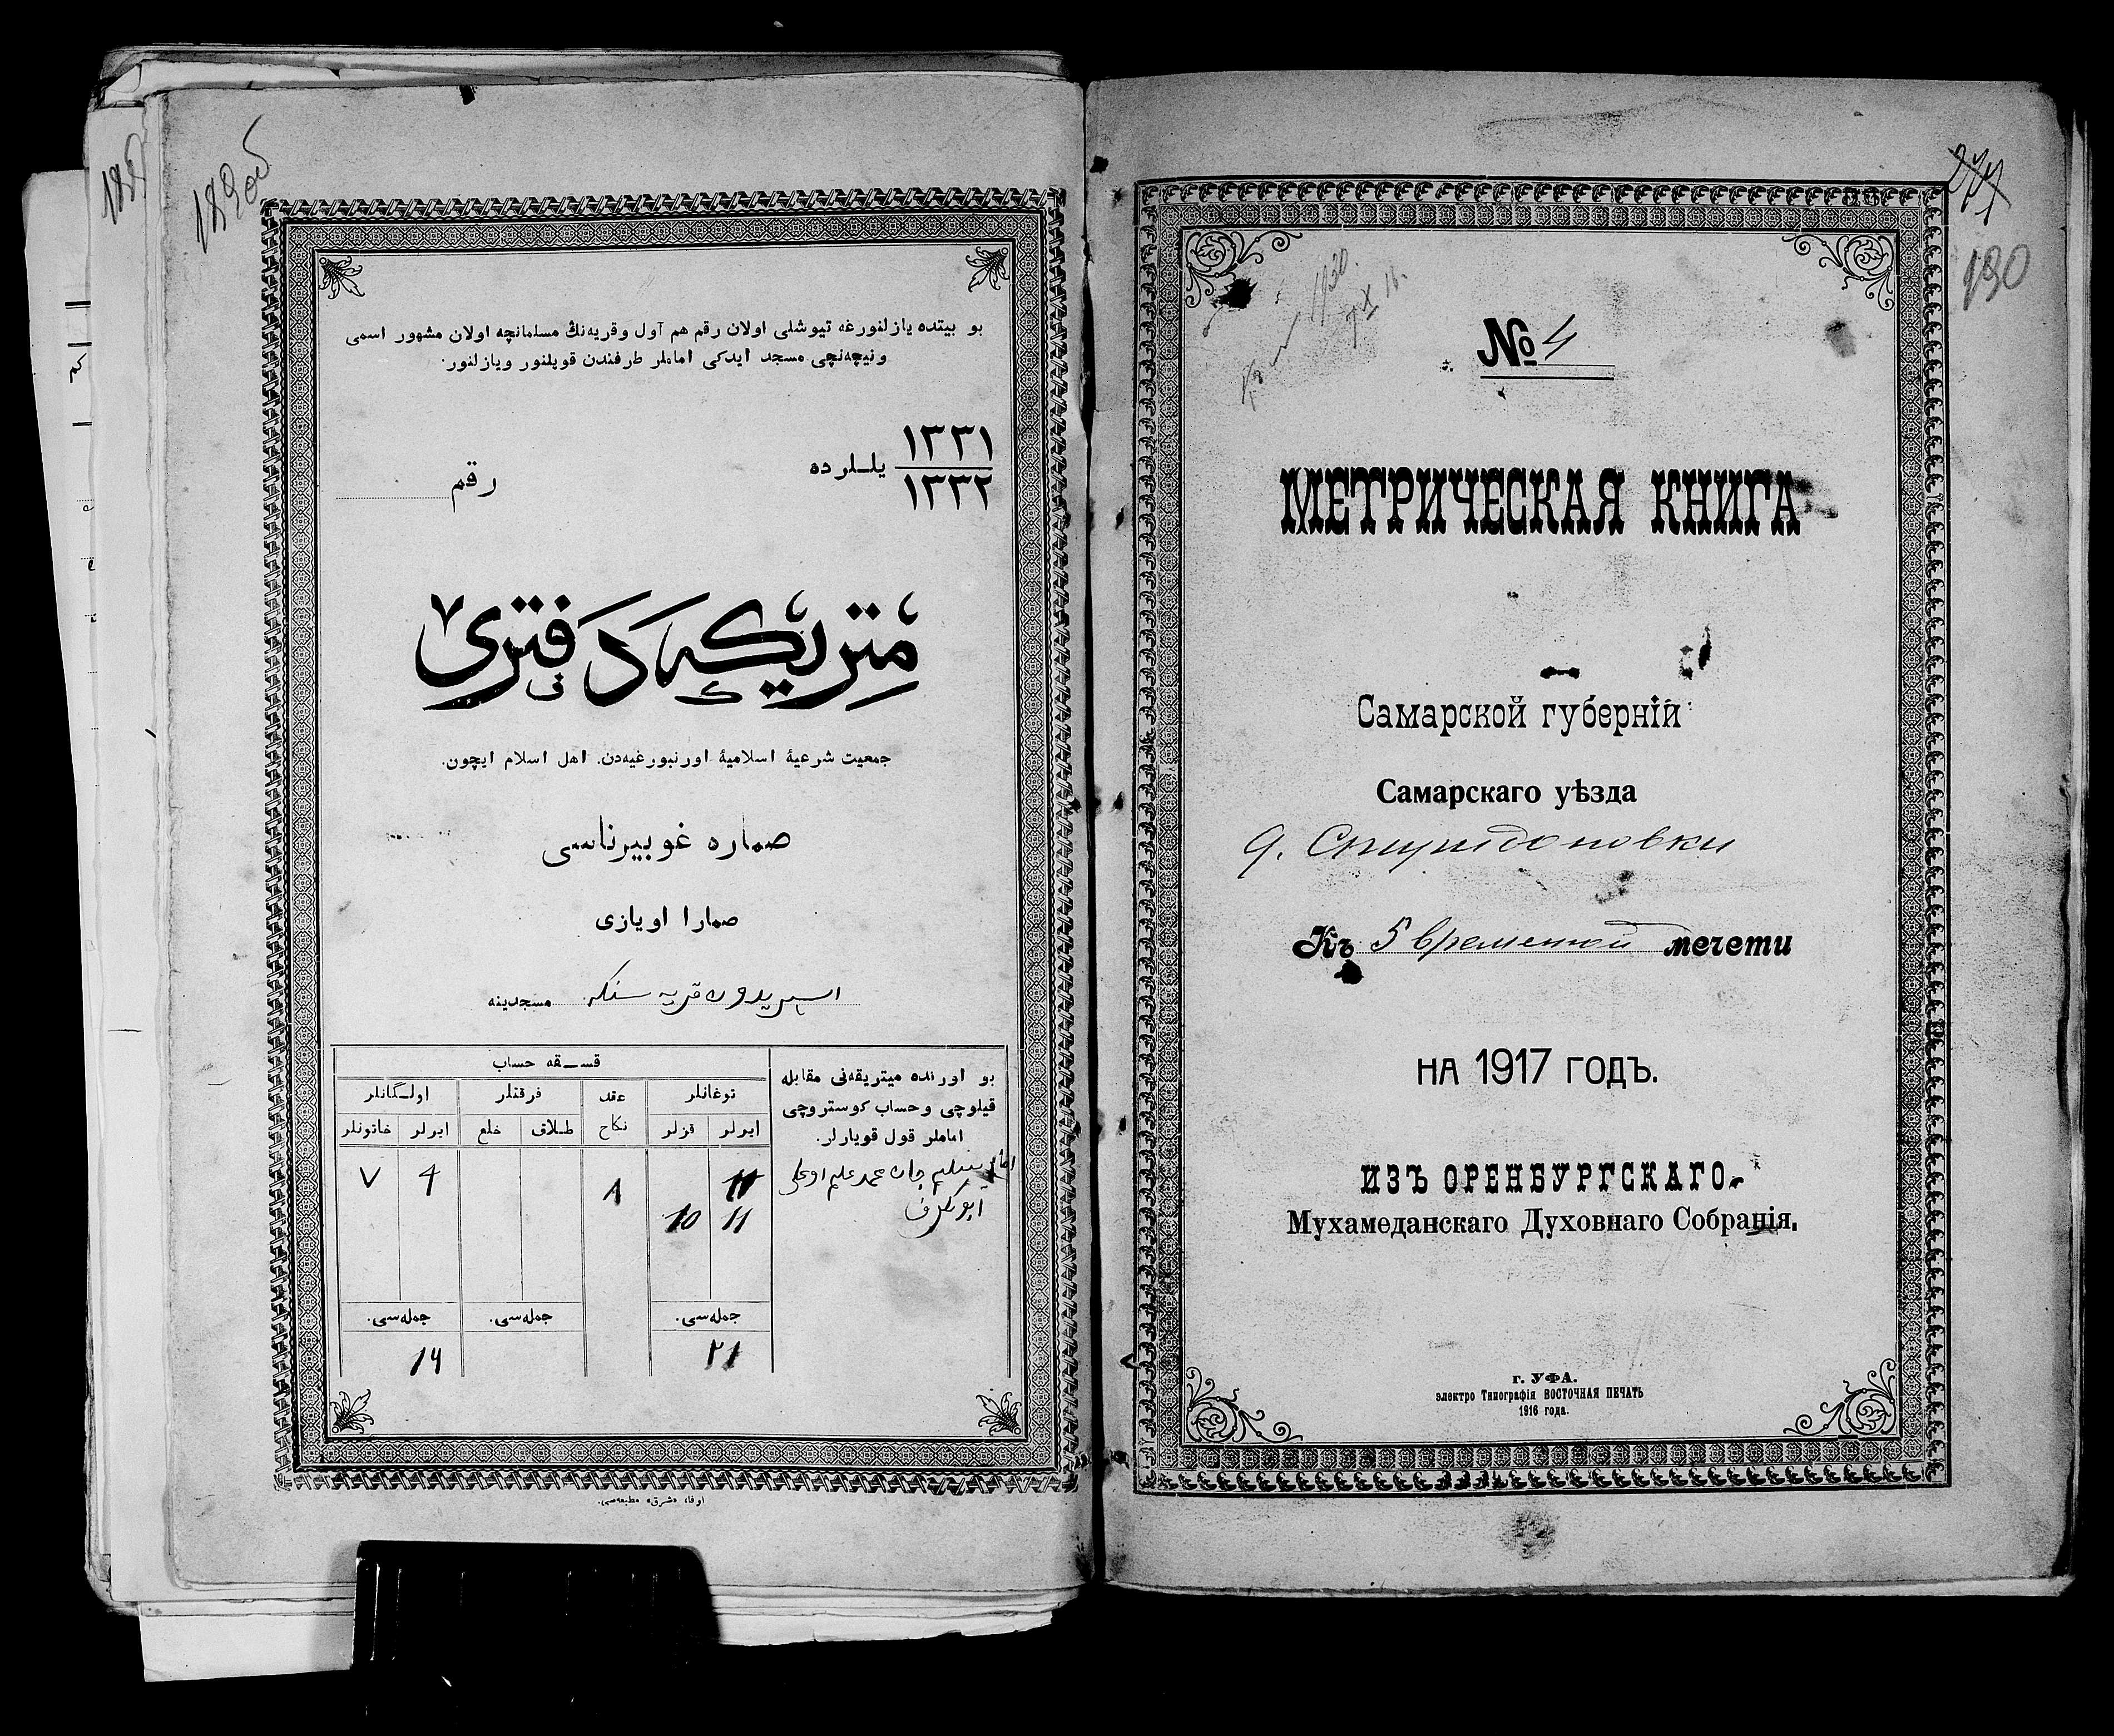 189об
بو بیتده یازلنورغه تیوشلی اولان رقم هم آول وقریه‌نڭ مسلمانچه اولان مشهور اسمی
ونیچه‌نچی مسجد ایدکی اماملر طرفندن قویلنور ویازلنور.
١٣٣١
١٣٣٢
یلـلرده
رقم
متریکه دفتری
جمعیت شرعیهٔ اسلامیهٔ اورنبورغیه‌دن. اهل اسلام ایچون.
صماره غوبیرناسی
صمارا اویازی
قریه سنكه مسجدینه
بو اورنده میتریقه‌نی مقابله
قیلوچی وحساب کوستروچی
اماملر قول قویارلر.
قســقه حساب
توغانلر
عقد
نکاح
فرقتلر
اولـگانلر
ایرلر
قزلر
طـلاق
خلع
ایرلر
خاتونلر
11
10
11
٨
٧
جمله‌سی.
جمله‌سی.
جمله‌سی.
٢١
اوفا، «شرق» مطبعه‌سی.
190
№ 4
МЕТРИЧЕСКАЯ КНИГА
Самарской губерніи
Самарскаго уѣзда
д. Спиридоновки
Къ 5 временной мечети
на 1917 годъ.
ИЗЪ ОРЕНБУРГСКАГО
Мухамеданскаго Духовнаго Собранія.
г. УФА.
электро Типографія ВОСТОЧНАЯ ПЕЧАТЬ
1916 года.